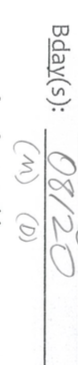 Bday(s): 08/20
(M) (D)